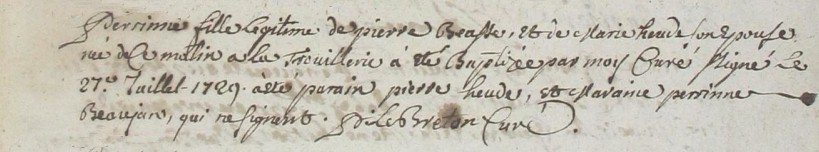 Perrinne fille legitime de pierre Beasse, et de Marie heude son Epouse
née de Ce matin a la Trouillerie à eté Baptizée par moy Curé signé Le
27.e Juillet 1729. à eté parain pierre heude, et Maraine perrinne
Beaujean, qui ne signent. P: Le Breton Curé.